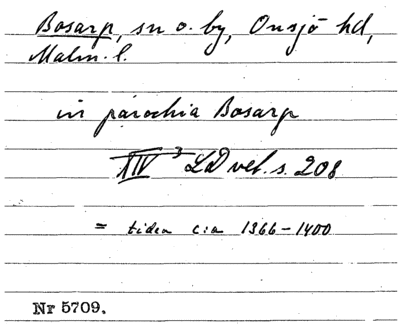 Bosarp, sn o. by, Onsjö hd,
Malm. l.
in parochia Bosarp
XIV³ LD vet. s. 208
= tiden c:a 1366–1400
Nr 5709.